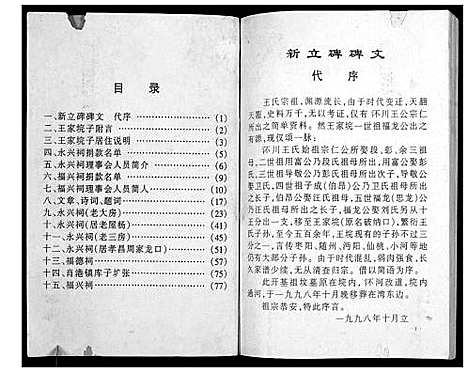 目 录
一、新立碑碑文 代序 (1)
二、王家垸子附言 (2)
三、王家垸子居住说明 (3)
四、永兴祠捐款名单 (4)
五、永兴祠理事会人员简介 (6)
六、福兴祠捐款名单 (5)
七、福兴祠理事会人员简人 (7)
八、文章、诗词、题词 (9)
九、永兴祠(老大房) (23)
十、永兴祠(居老屋杨) (45)
十一、永兴祠(老三房) (49)
十二、永兴祠(居孝昌周家龙口) (51)
十三、福德祠 (57)
十四、肖港镇库子扩张 (75)
十五、福兴祠 (77)
新立碑碑文
代 序
王氏宗祖，渊源流长，由于时代变迁，天翻
天覆，史料万千，无以考证，仅有怀川王公宗仁
所出之简单资料。然王家垸一世祖福龙公出之
有源，现仅颂一脉：
怀川王氏始祖宗仁公所娶段、彭、余三祖
母，二世祖用富公乃段氏祖母所出，用富公娶彭
氏，三世祖导敬公乃彭氏祖母所出次子，导敬公
娶卫氏，四世祖子成(伯昂)公乃卫氏祖母所出
之长子，伯昂公娶汪氏祖母，五世福龙(思龙)公
乃汪氏祖母所出之长子，福龙公娶刘氏另从十
王分支一，移至王家垸(原名破咀口)，繁衍王
氏子孙，至今五百余年，王垸现有的子孙不过三
分之一，言传枣阳、随州、沔阳、仙桃、小河等地
仍有大部分子孙。由于时代混乱，弱肉强食，长
久家谱少续，无从清查归宗。借以简语为序。
此开基祖坟墓原在垸内，怀河改道，垸内
通河，于一九九八年十月晚移葬在湾东边。
祖宗恭安，特此序言。
一九九八年十月立